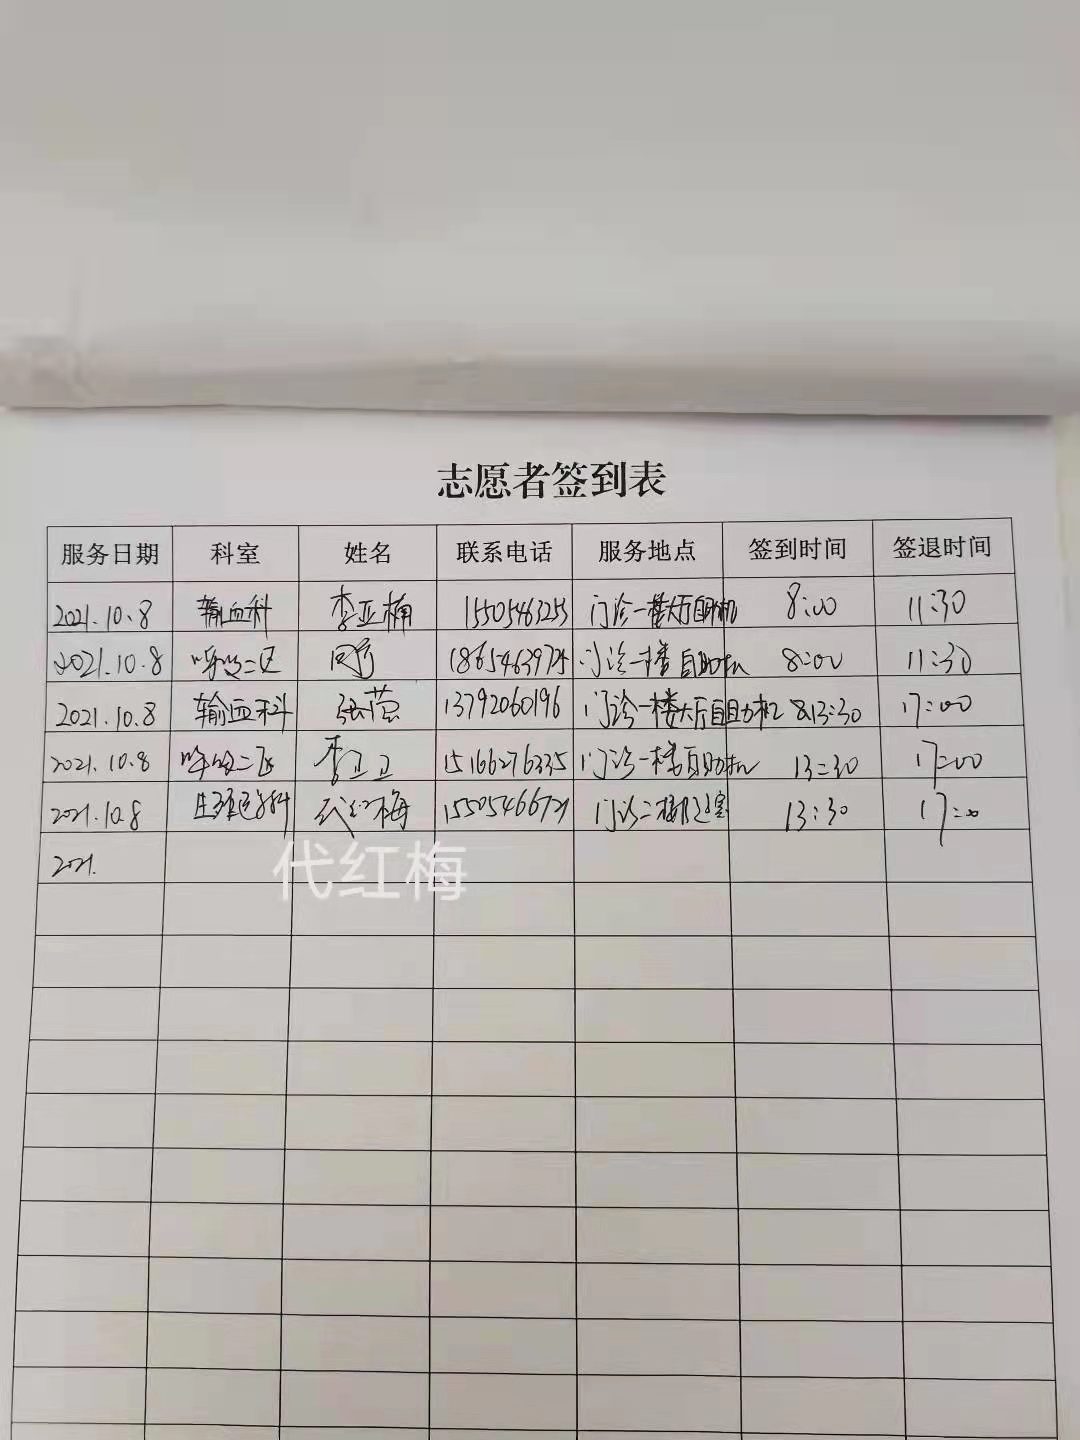 志愿者签到表
服务日期 科室 姓名 联系电话 服务地点 签到时间 签退时间
2021.10.8 输血科 李亚楠 15505463253 门诊一楼大厅自助机 8:00 11:30
2021.10.8 呼吸二区 门诊一楼自助机 8:00 11:30
2021.10.8 输血科 张萤 13792060196 门诊一楼大厅自助机 13:30 17:00
2021.10.8 呼吸二区 李卫卫 15166276335 门诊一楼自助机 13:30 17:00
2021.10.8 代红梅 15505466721 门诊二楼 13:30 17:00
2021.
代红梅